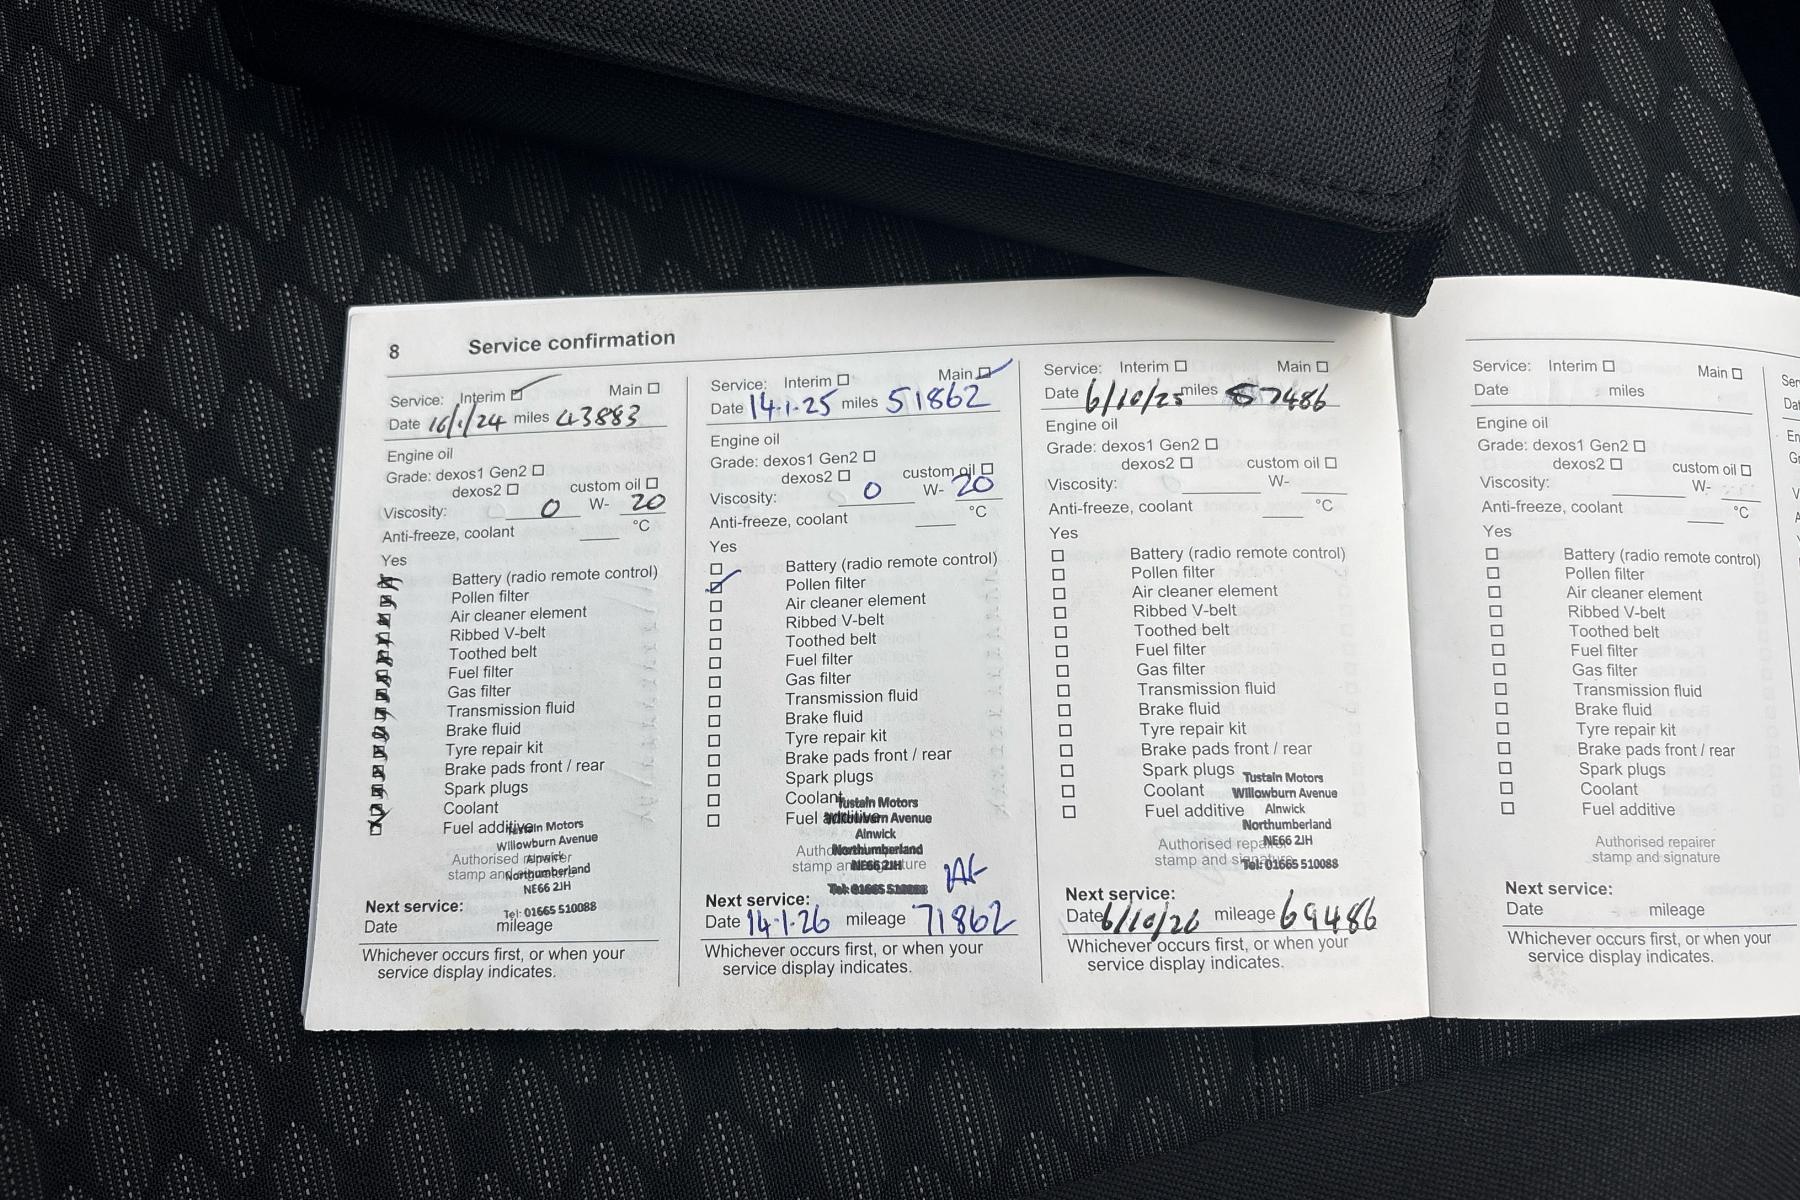 8 Service confirmation
Service: Interim Main
Date 16/1/24 miles 43883
Engine oil
Grade: dexos1 Gen2
dexos2 custom oil
Viscosity: 0 W- 20
Anti-freeze, coolant °C
Yes
Battery (radio remote control)
Pollen filter
Air cleaner element
Ribbed V-belt
Toothed belt
Fuel filter
Gas filter
Transmission fluid
Brake fluid
Tyre repair kit
Brake pads front / rear
Spark plugs
Coolant
Fuel additive
Tustain Motors
Willowburn Avenue
Alnwick
Northumberland
NE66 2JH
Tel: 01665 510088
Authorised repairer
stamp and
Next service:
Date mileage
Whichever occurs first, or when your
service display indicates.
Service: Interim Main
Date 14·1·25 miles 51862
Engine oil
Grade: dexos1 Gen2
dexos2 custom oil
Viscosity: 0 W- 20
Anti-freeze, coolant °C
Yes
Battery (radio remote control)
Pollen filter
Air cleaner element
Ribbed V-belt
Toothed belt
Fuel filter
Gas filter
Transmission fluid
Brake fluid
Tyre repair kit
Brake pads front / rear
Spark plugs
Coolant
Fuel additive
Tustain Motors
Willowburn Avenue
Alnwick
Northumberland
NE66 2JH
Tel: 01665 510088
stamp and signature
Next service:
Date 14·1·26 mileage 71862
Whichever occurs first, or when your
service display indicates.
Service: Interim Main
Date 6/10/25 miles 57486
Engine oil
Grade: dexos1 Gen2
dexos2 custom oil
Viscosity: W-
Anti-freeze, coolant °C
Yes
Battery (radio remote control)
Pollen filter
Air cleaner element
Ribbed V-belt
Toothed belt
Fuel filter
Gas filter
Transmission fluid
Brake fluid
Tyre repair kit
Brake pads front / rear
Spark plugs
Coolant
Fuel additive
Tustain Motors
Willowburn Avenue
Alnwick
Northumberland
NE66 2JH
Tel: 01665 510088
Authorised repairer
stamp and signature
Next service:
Date 6/10/26 mileage 69486
Whichever occurs first, or when your
service display indicates.
Service: Interim Main
Date miles
Engine oil
Grade: dexos1 Gen2
dexos2 custom oil
Viscosity: W-
Anti-freeze, coolant °C
Yes
Battery (radio remote control)
Pollen filter
Air cleaner element
Ribbed V-belt
Toothed belt
Fuel filter
Gas filter
Transmission fluid
Brake fluid
Tyre repair kit
Brake pads front / rear
Spark plugs
Coolant
Fuel additive
Authorised repairer
stamp and signature
Next service:
Date mileage
Whichever occurs first, or when your
service display indicates.